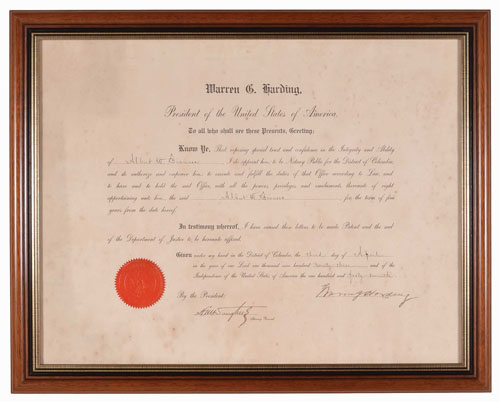 Warren G. Harding,
President of the United States of America.
To all who shall see these Presents, Greeting:
Know Ye, That reposing special trust and confidence in the Integrity and Ability
of Albert W. I do appoint him to be Notary Public for the District of Columbia,
and do authorize and empower him to execute and fulfill the duties of that Office according to Law, and
to have and to hold the said Office with all the powers, privileges and emoluments thereunto of right
appertaining unto him, the said Albert W. for the term of five
years from the date hereof.
In testimony whereof, I have caused these letters to be made Patent and the seal
of the Department of Justice to be hereunto affixed.
Given under my hand in the District of Columbia the day of
in the year of our Lord one thousand nine hundred and of the
Independence of the United States of America the one hundred and
By the President:
Warren G Harding
Attorney General